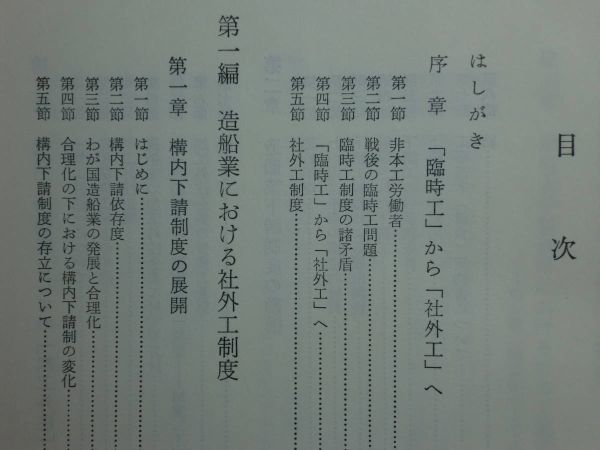 目次
はしがき
序章 「臨時工」から「社外工」へ
第一節 非本工労働者
第二節 戦後の臨時工問題
第三節 臨時工制度の諸矛盾
第四節 「臨時工」から「社外工」へ
第五節 社外工制度
第一編 造船業における社外工制度
第一章 構内下請制度の展開
第一節 はじめに
第二節 構内下請依存度
第三節 わが国造船業の発展と合理化
第四節 合理化の下における構内下請制の変化
第五節 構内下請制度の存立について